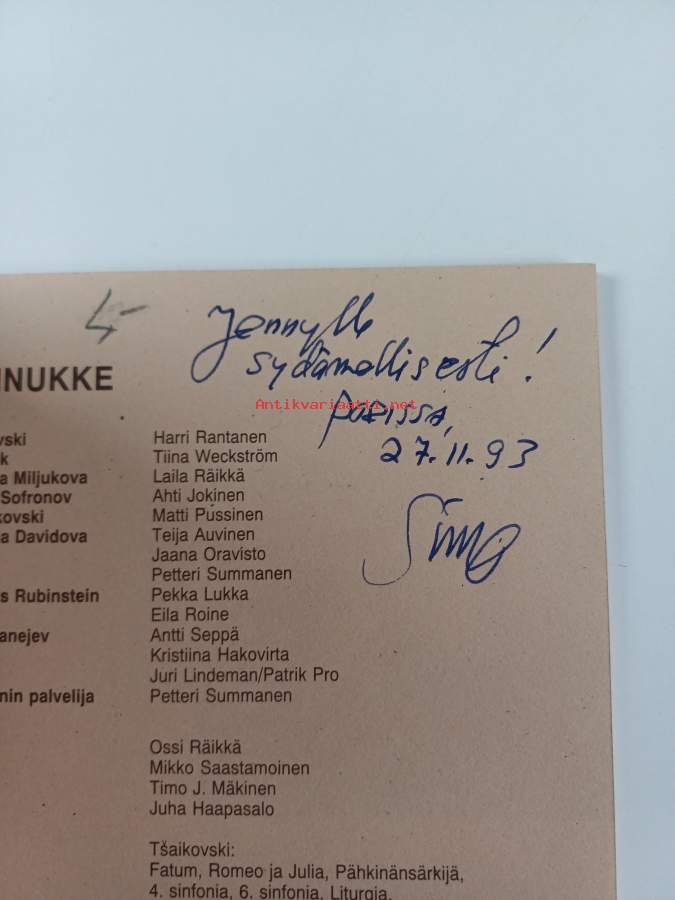 4-
Jennylle
sydämellisesti!
Antikvariaatti.net
27.11.93
Simo
NNUKKE
vski Harri Rantanen
k Tiina Weckström
a Miljukova Laila Räikkä
Sofronov Ahti Jokinen
kovski Matti Pussinen
a Davidova Teija Auvinen
Jaana Oravisto
Petteri Summanen
s Rubinstein Pekka Lukka
Eila Roine
anejev Antti Seppä
Kristiina Hakovirta
Juri Lindeman/Patrik Pro
nin palvelija Petteri Summanen
Ossi Räikkä
Mikko Saastamoinen
Timo J. Mäkinen
Juha Haapasalo
Tšaikovski:
Fatum, Romeo ja Julia, Pähkinänsärkijä,
4. sinfonia, 6. sinfonia, Liturgia.